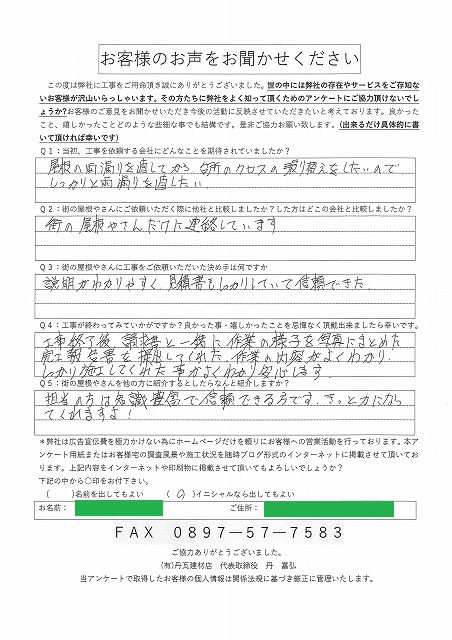 お客様のお声をお聞かせください
この度は弊社に工事をご用命頂き誠にありがとうございました。世の中には弊社の存在やサービスをご存知
ないお客様が沢山いらっしゃいます。その方たちに弊社をよく知って頂くためのアンケートにご協力頂けないでし
ょうか?お客様のご意見をお聞かせいただき今後の活動に反映させていただきたいと考えております。良かった
こと、嬉しかったことどのような些細な事でも結構です。是非ご協力お願い致します。(出来るだけ具体的に書
いて頂ければ幸いです)
Q1:当初、工事を依頼する会社にどんなことを期待されていましたか?
屋根の雨漏りを直してから、台所のクロスの張り替えをしたいので
しっかりと雨漏りを直したい。
Q2:街の屋根やさんにご依頼いただく際に他社と比較しましたか?した方はどこの会社と比較しましたか?
街の屋根やさんだけに連絡しています
Q3:街の屋根やさんに工事をご依頼いただいた決め手は何ですか
説明がわかりやすく、見積書もしっかりしていて信頼できた。
Q4:工事が終わってみていかがですか?良かった事・嬉しかったことを忌憚なく頂戴出来ましたら幸いです。
工事終了後、請求書と一緒に作業の様子を写真にまとめた
完工報告書を提出してくれた。作業の内容がよくわかり、
しっかり施工してくれた事がよくわかり安心します。
Q5:街の屋根やさんを他の方に紹介するとしたらなんと紹介しますか?
担当の方は知識豊富で信頼できる方です。きっと力になっ
てくれますよ!
*弊社は広告宣伝費を極力かけない為にホームページだけを頼りにお客様への営業活動を行っております。本ア
ンケート用紙またはお客様宅の調査風景や施工状況を随時ブログ形式のインターネットに掲載させて頂いてお
ります。上記内容をインターネットや印刷物に掲載させて頂いてもよろしいでしょうか?
下記の中から〇印をお付下さい。
( )名前を出してもよい ( ○ )イニシャルなら出してもよい
お名前: ご住所:
FAX 0897-57-7583
ご協力ありがとうございました。
(有)丹瓦建材店 代表取締役 丹 富弘
当アンケートで取得したお客様の個人情報は関係法規に基づき厳正に管理いたします。